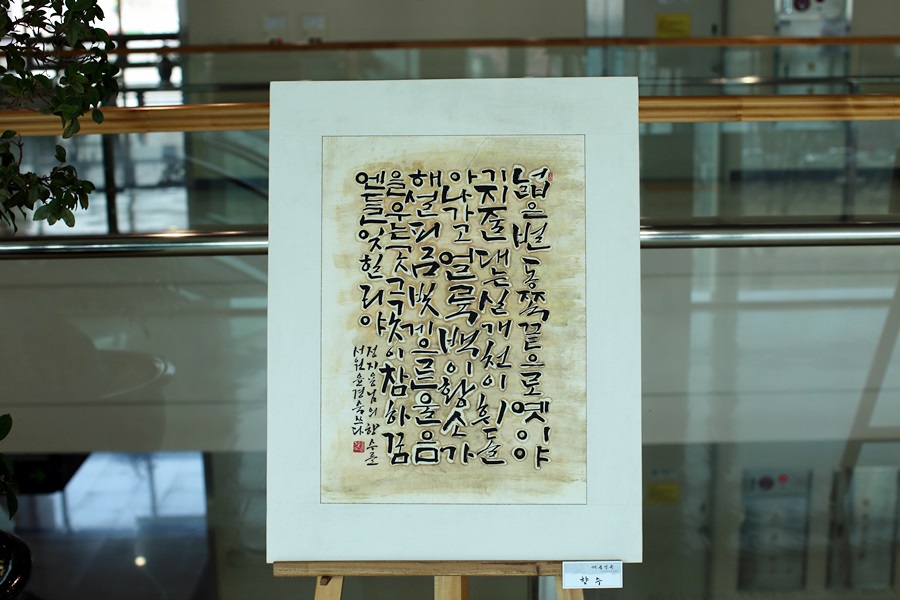 넓은벌동쪽끝으로옛이야
기지줄대는실개천이휘돌
아나가고얼룩백이황소가
해설피금빛게으른울음
을우는곳그곳이참하꿈
엔들잊힐리야
정지용님의향수를
서원윤경숙쓰다
향수